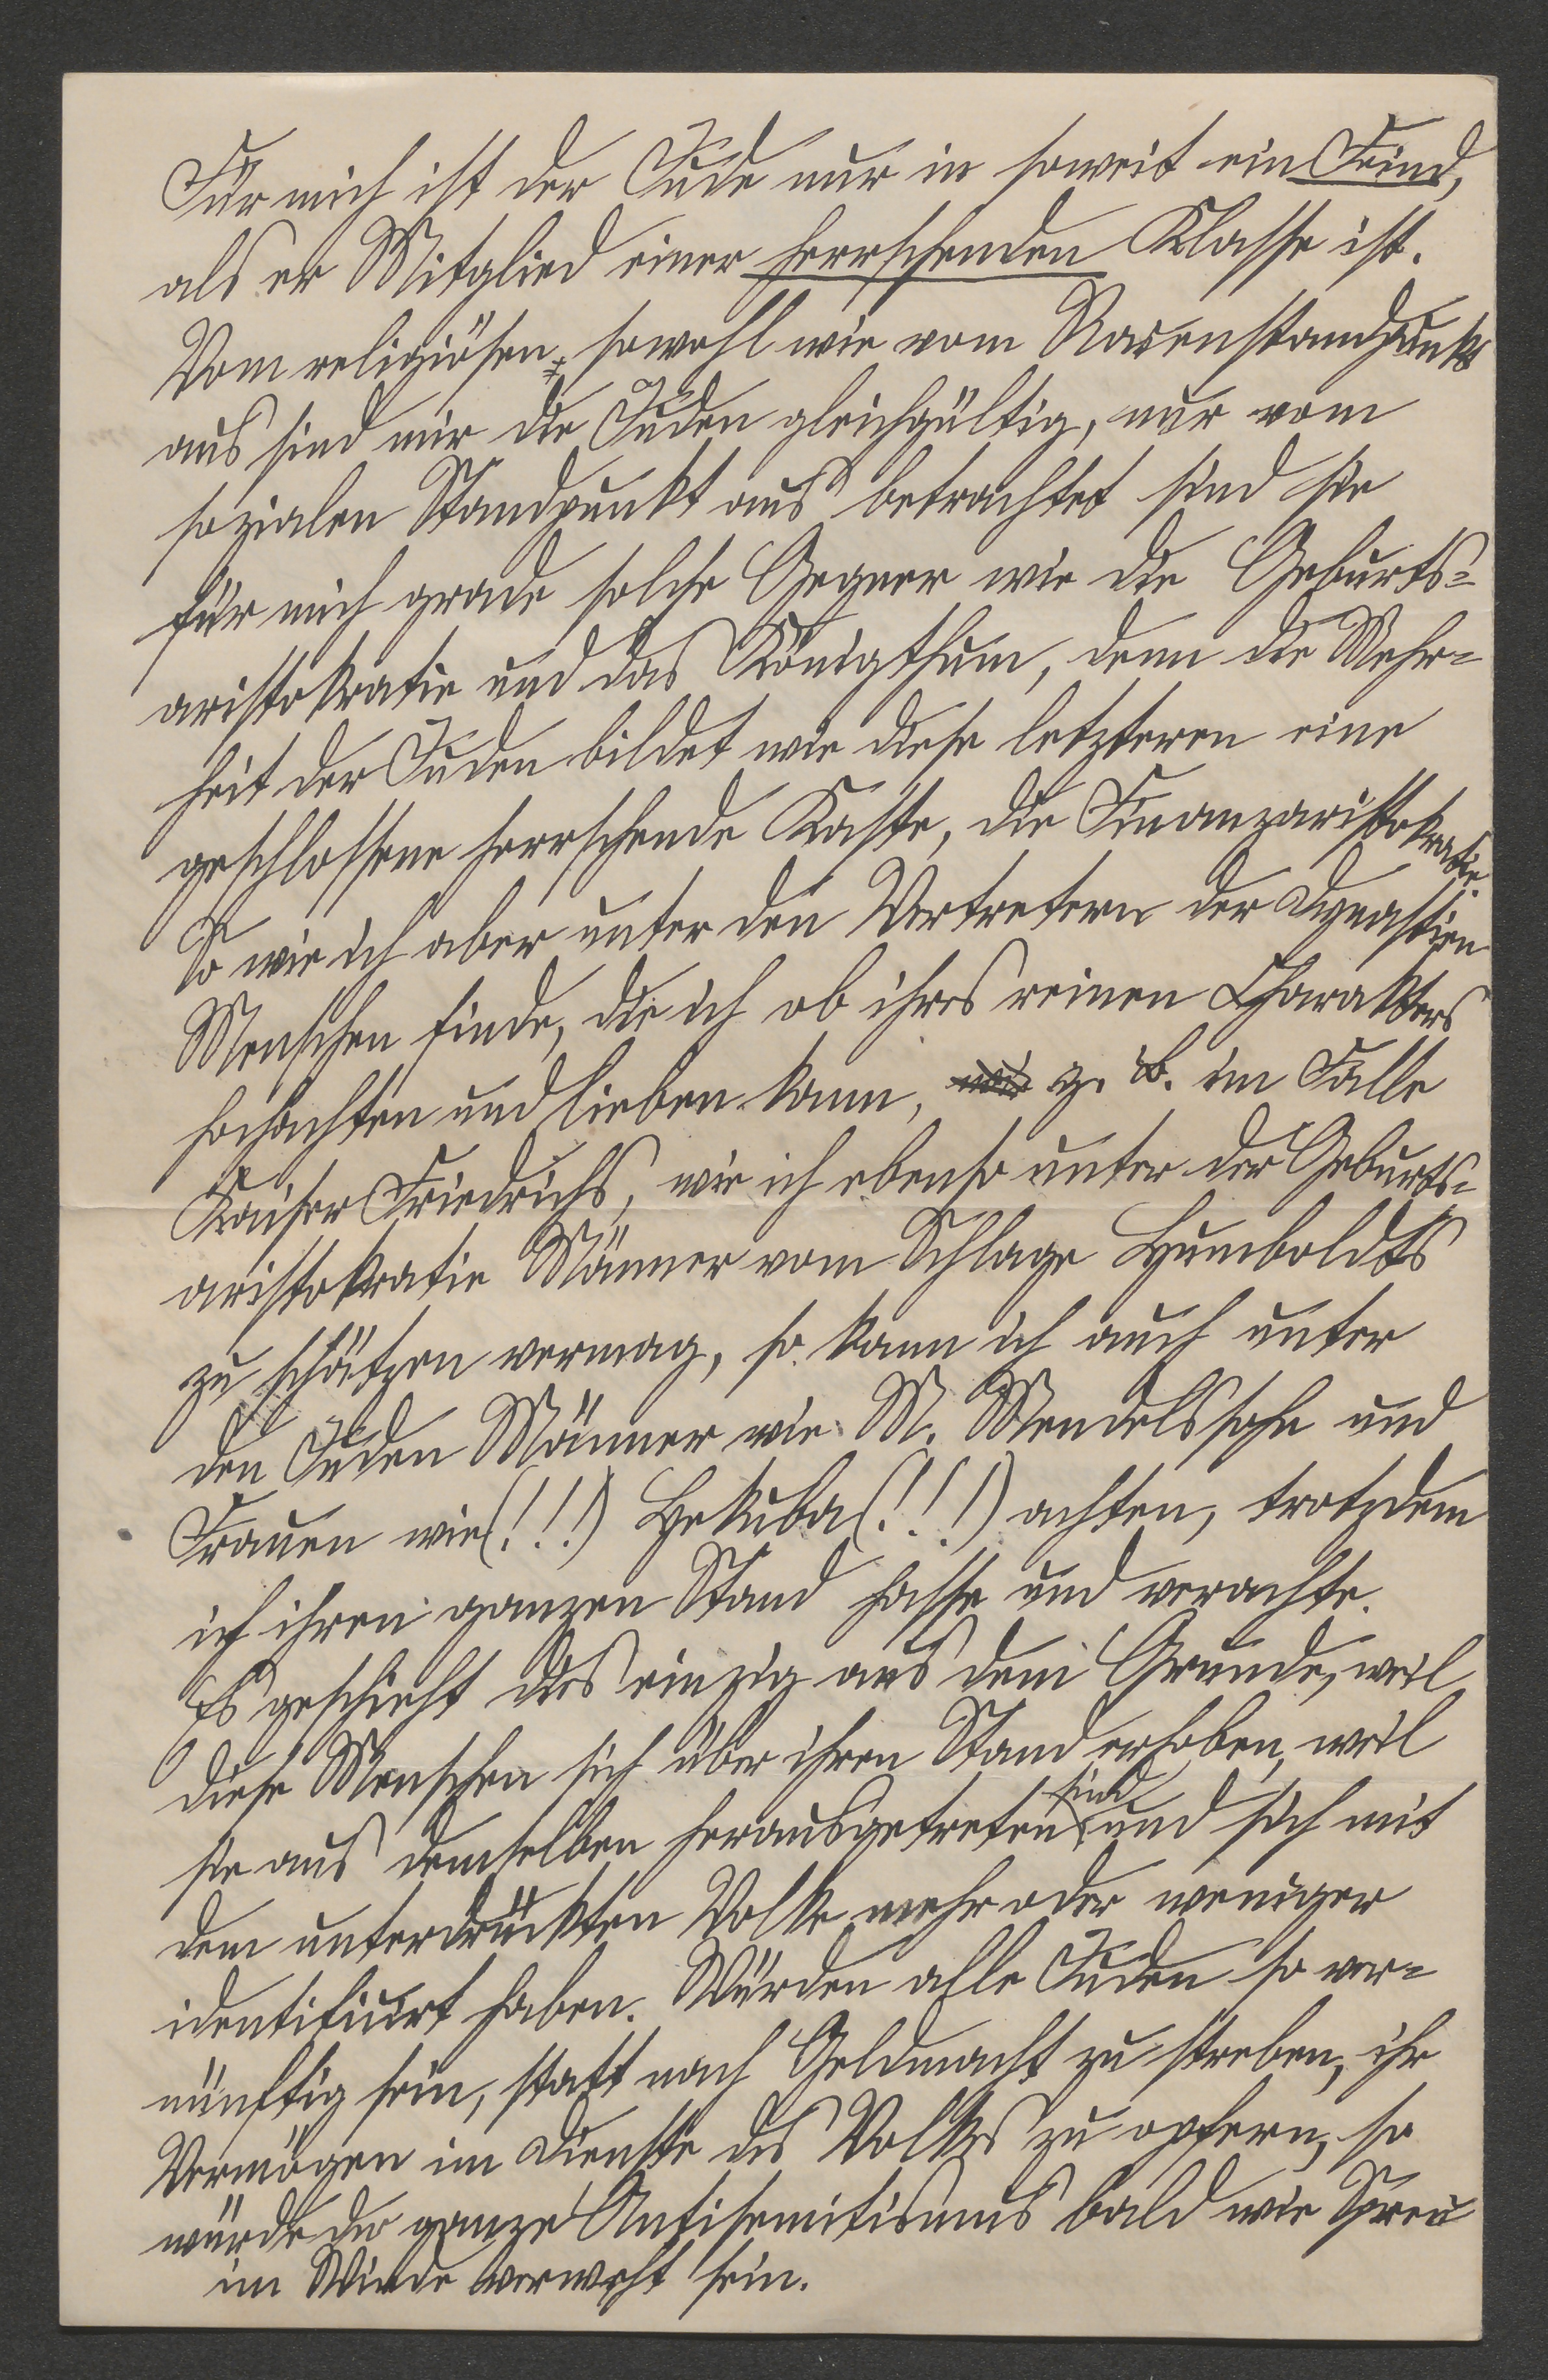 Für mich ist der Jude nur in soweit ein Feind,
als er Mitglied einer herrschenden Klasse ist.
Vom religiösen, sowohl wie vom Racenstandpunkt
aus sind mir die Juden gleichgültig, nur vom
sozialen Standpunkt aus betrachtet sind sie
für mich grade solche Gegner wie die Geburts-
aristokratie und das Königthum, denn die Mehr-
heit der Juden bildet wie diese letzteren eine
geschlossene herrschende Kaste, die Finanzaristokratie.
So wie ich aber unter den Vertretern der Dynastien
Menschen finde, die ich ob ihres reinen Charakters
hochachten und lieben kann, wie z. B. im Falle
Kaiser Friedrichs, wie ich ebenso unter der Geburts-
aristokratie Männer vom Schlage Humboldts
zu schätzen vermag, so kann ich auch unter
den Juden Männer wie M. Mendelssohn und
Frauen wie (!!!) Hekuba (!!!) achten, trotzdem
ich ihren ganzen Stand hasse und verachte.
Es geschieht dies einzig aus dem Grunde, weil
diese Menschen sich über ihren Stand erhoben, weil
sie aus demselben herausgetreten sind und sich mit
dem unterdrückten Volke mehr oder weniger
identificirt haben. Würden alle Juden so ver-
nünftig sein, statt nach Geldmacht zu streben, ihr
Vermögen im Dienste des Volkes zu opfern, so
würde der ganze Antisemitismus bald wie Spreu
im Winde verweht sein.